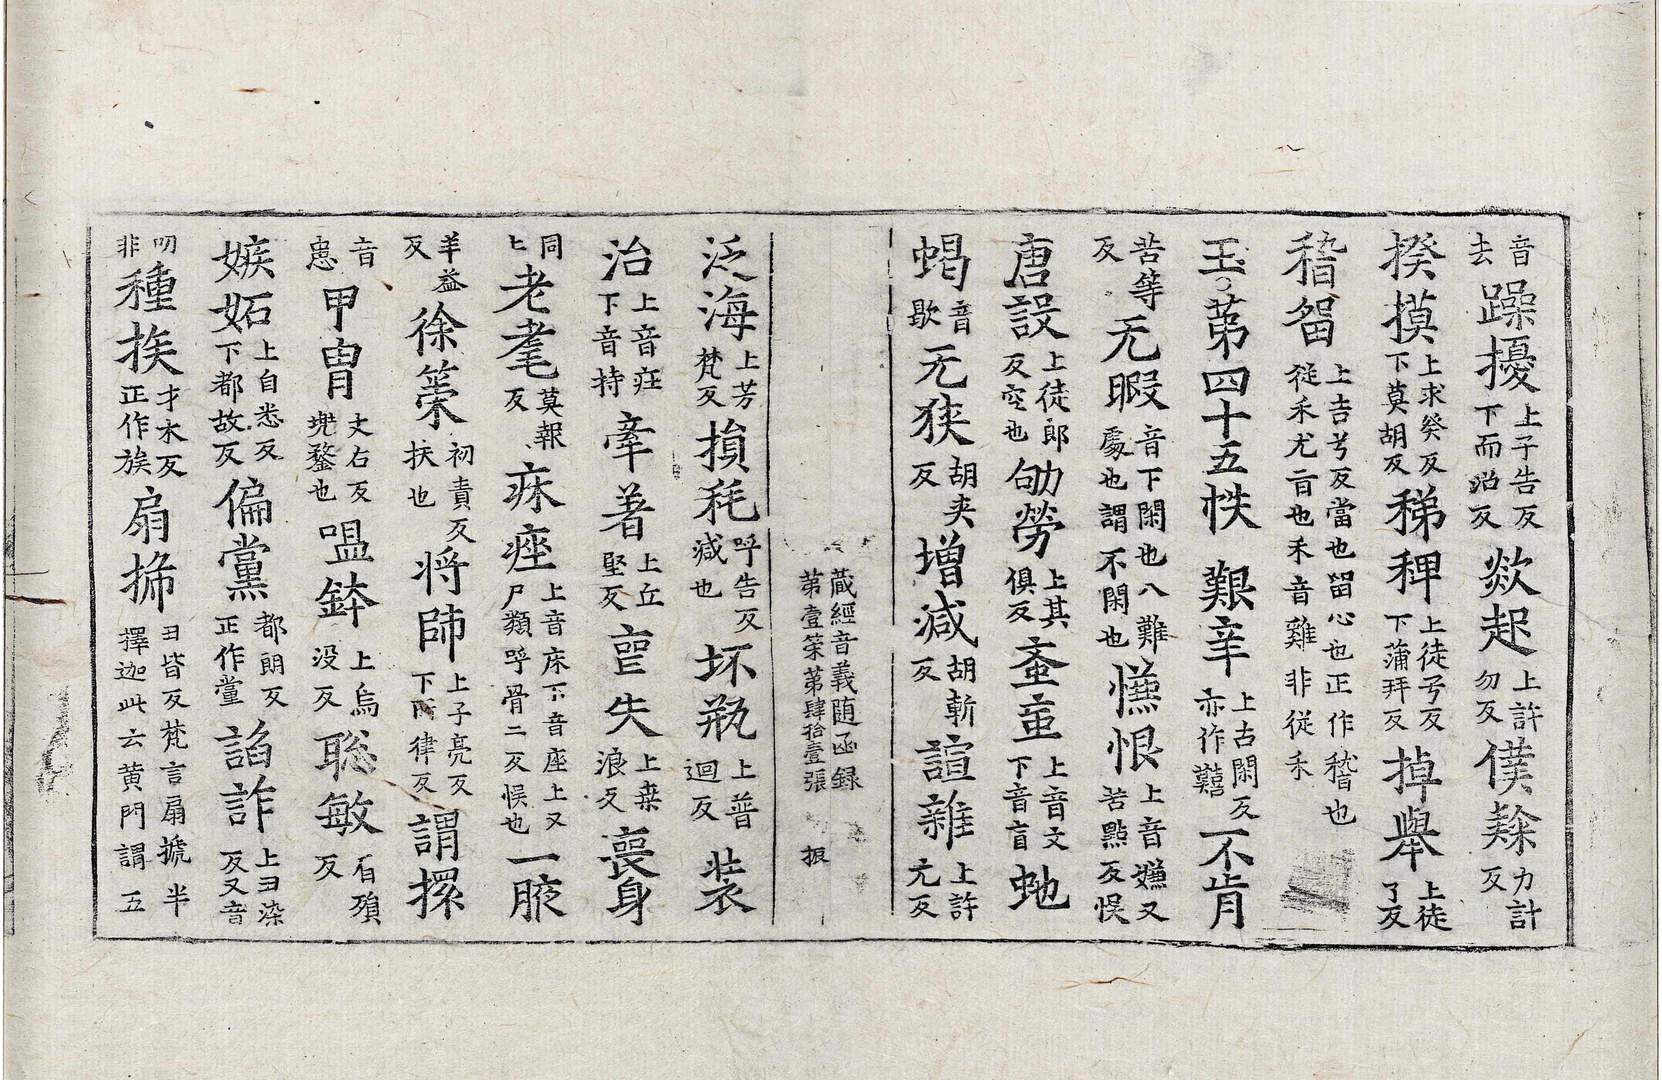 音去躁擾上子告反下而沼反欻起上許勿反僕䅳力計反
揆摸上求癸反下莫胡反稊稗上徒兮反下蒲拜反掉舉上徒了反
稽留上吉兮反當也留心也正作稽也從禾尤盲也禾音雞非從禾
玉第四十五帙艱辛上古閑反亦作囏不肯
苦等反无暇音下閑也八難處也謂不閑也慊恨上音嫌又苦㸃反悮
唐設上徒郎反空也劬勞上其俱反蚉䖟上音文下音盲虵
蝎音歇无狹胡夾反增減胡斬反諠雜上許元反
蔵經音義随函録
第壹策第肆拾壹張 振
泛海上芳梵反損秏呼告反減也坏瓶上普迴反裝
治上音㽵下音持牽著上丘堅反亡失上桒浪反喪身
同上老耄莫報反痳痤上音床下音座上又尸類呼骨二反悮也一腋
羊益反徐䇿初責反扶也将師上子亮反下所律反謂摞
音患甲冑丈右反兠鍪也嗢鉢上烏没反聡敏眉殞反
嫉妬上自悉反下都故反偏黨都朗反正作黨謟詐上丑染反又音
叨非種挨才木反正作族扇搋丑皆反梵言扇搋半擇迦此云黄門謂五